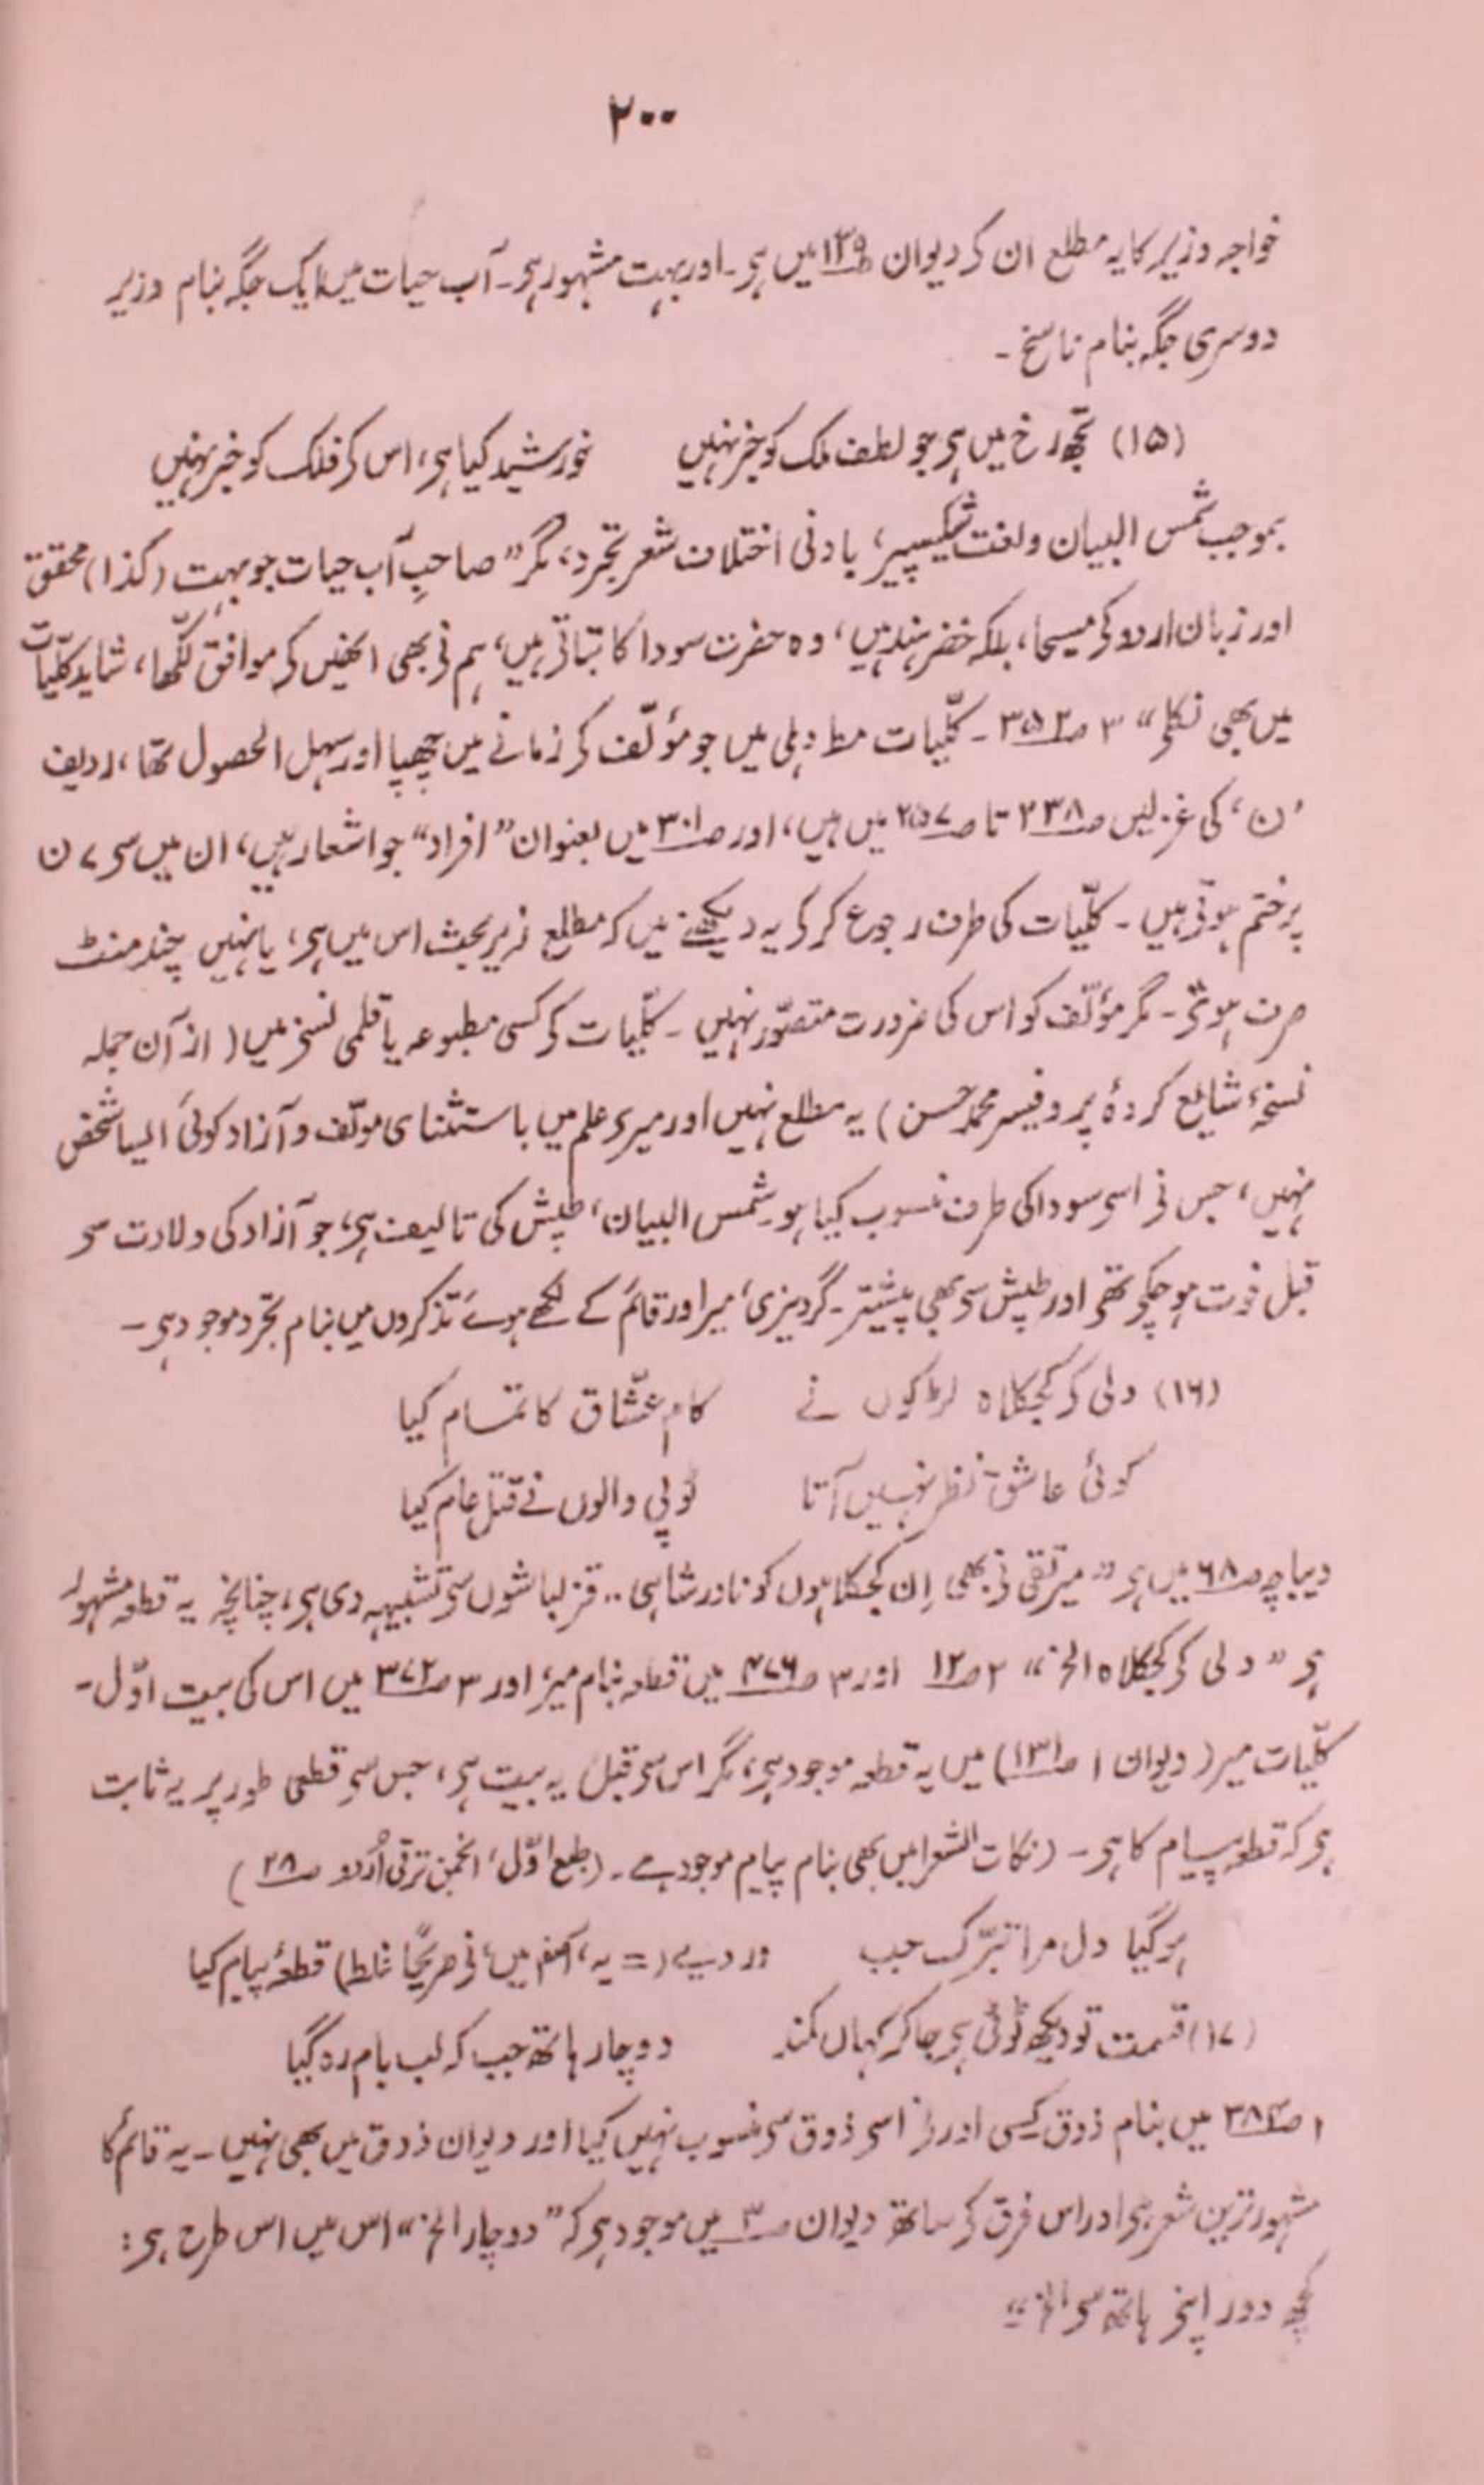 ۲۰۰
خواجہ وزیر کا یہ مطلع ان کے دیوان ص۱۳۹ میں ہے۔ اور بہت مشہور ہے۔ آب حیات میں ایک جگہ بنام وزیر
دوسری جگہ بنام ناسخ۔
(۱۵) تجھ رخ میں ہے جو لطف ملک کو خبر نہیں خورشید کیا ہے، اس کے فلک کو خبر نہیں
بموجب شمس البیان و لغت شیکسپیر، بادنی اختلاف شعر تجرد، مگر ”صاحبِ آب حیات جو بہت (کذا) محقق
اور زبان اردو کے مسیحا، بلکہ خضر ہند ہیں، وہ حضرت سودا کا بتاتے ہیں، ہم نے بھی انھیں کے موافق لکّھا، شاید کلّیات
میں بھی نکلے“ ۳ ص۳۵۲۔ کلّیات مط دہلی میں جو مؤلّف کے زمانے میں چھپا اور سہل الحصول تھا، ردیف
’ن‘ کی غزلیں ص۲۳۸ تا ص۲۵۷ میں ہیں، اور ص۳۰۱ میں بعنوان ”افراد“ جو اشعار ہیں، ان میں سے ۷ ن
پر ختم ہوتے ہیں۔ کلّیات کی طرف رجوع کر کے یہ دیکھنے میں کہ مطلع زیر بحث اس میں ہے، یا نہیں چند منٹ
صرف ہوتے۔ مگر مؤلّف کو اس کی ضرورت متصوّر نہیں۔ کلّیات کے کسی مطبوعہ یا قلمی نسخے میں (از آن جملہ
نسخۂ شایع کردۂ پروفیسر محمد حسن) یہ مطلع نہیں اور میرے علم میں باستثنای مولّف و آزاد کوئی ایسا شخص
نہیں، جس نے اسے سودا کی طرف منسوب کیا ہو۔ شمس البیان، طپش کی تالیف ہے، جو آزاد کی ولادت سے
قبل فوت ہو چکے تھے اور طپش سے بھی پیشتر۔ گردیزی، میر اور قائم کے لکھے ہوئے تذکروں میں بنام تجرد موجود ہے۔
(۱۶) دلی کے کجکلاہ لڑکوں نے کام عشّاق کا تمام کیا
کوئی عاشق نظر نہیں آتا ٹوپی والوں نے قتل عام کیا
دیباچہ ص۶۸ میں ہے ”میر تقی نے بھی اِن کجکلاہوں کو نادر شاہی .. قزلباشوں سے تشبیہہ دی ہے، چنانچہ یہ قطعہ مشہور
ہے ”دلی کے کجکلاہ الخ“ ۲ ص۱۲ اور ۳ ص۴۷۶ میں قطعہ بنام میر، اور ۳ ص۳۷۲ میں اس کی بیت اوّل۔
کلّیات میر (دیوان ۱ ص۱۳۱) میں یہ قطعہ موجود ہے، مگر اس سے قبل یہ بیت ہے، جس سے قطعی طور پر یہ ثابت
ہے کہ قطعہ پیام کا ہے۔ (نکات الشعرا میں بھی بنام پیام موجود ہے۔ (طبع اوّل، انجمن ترقی اُردو ص۲۸)
ہو گیا دل مرا تبرّک جب ورد یے (= یہ، آصفہ میں، نے صریحًا غلط) قطعۂ پیام کیا
(۱۷) قسمت تو دیکھ ٹوٹی ہے جا کر کہاں کمند دو چار ہاتھ جب کہ لب بام رہ گیا
۱ ص۳۸۲ میں بنام ذوق کسی اور نے اسے ذوق سے منسوب نہیں کیا اور دیوان ذوق میں بھی نہیں۔ یہ قائم کا
مشہور ترین شعر ہے اور اس فرق کے ساتھ دیوان ص۳ میں موجود ہے کہ ”دو چار الخ“ اس میں اس طرح ہے:
کچھ دور اپنے ہاتھ سے الخ“